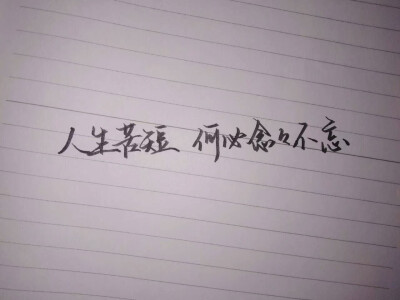 人生苦短 何必念々不忘